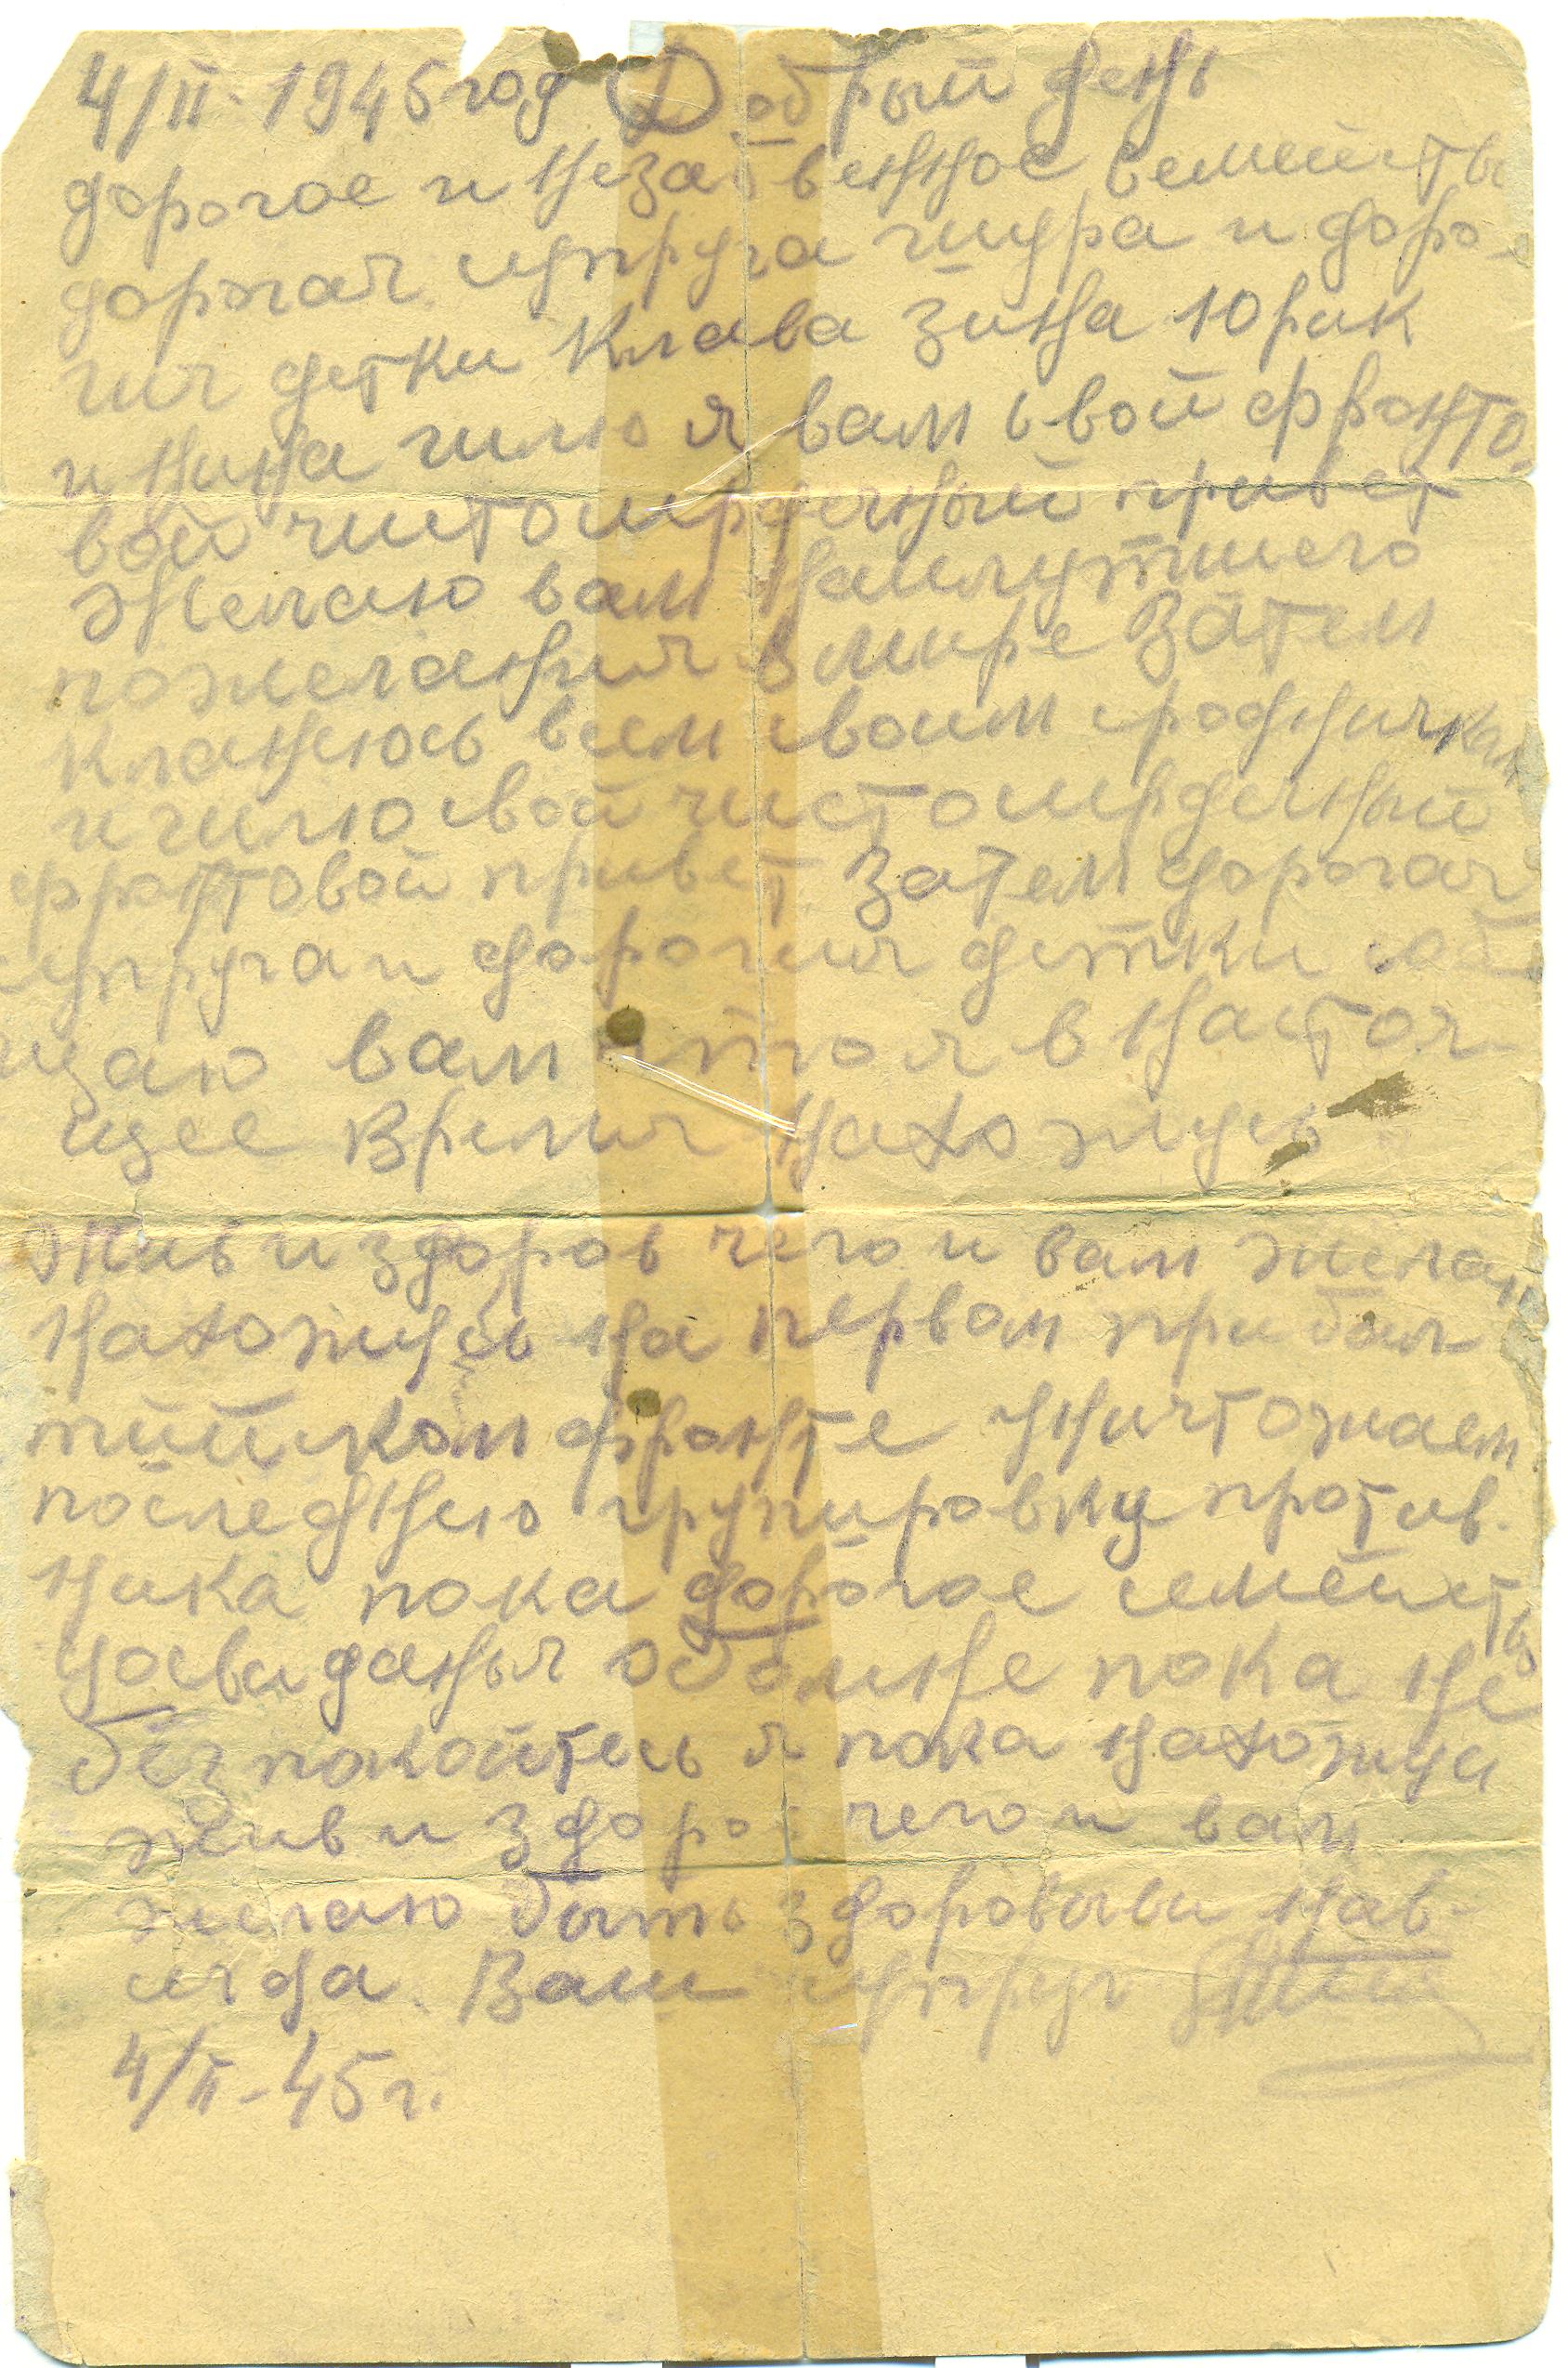 4/II-1945 год Добрый день
дорогое и незабвенное семейство
доргая супруга шура и доро-
гия детки Клава зина Юрик
и нина шлю я вам свой фронто-
вой чистосирдечный привет
Желаю вам наилутшего
пожелания в мире Затем
кланеюсь всем своим сродничкам
и шлю свой чистосирдечный
фронтовой привет. Затем дорогая
супруга и дорогия детки сооб
щаю вам што я в настоя-
щее Время нахожусь
жив и здоров чего и вам желаю
нахожусь на первом прибал
тийском фронте Уничтожаем
последнею групировку против-
ника пока дорогое семейство
досвиданья обомне пока не
безпокойтесь я пока нахожуся
жив и здоров чего и вам
желаю быть здоровыви нав-
сигда. Ваш супруг
4/II-45 г.